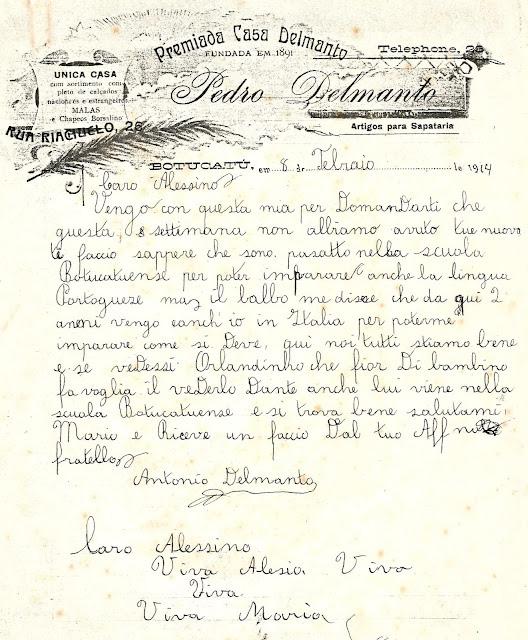 Premiada Casa Delmanto
FUNDADA EM 1891
Telephone, 26
UNICA CASA
com sortimento com-
pleto de calçados
nacionaes e estrangeiros
MALAS
e Chapeos Borsalino
RUA RIACHUELO, 26
Pedro Delmanto
Artigos para Sapataria
BOTUCATÚ, em 8 de Febraio de 1914
Caro Alessino
Vengo con questa mia per DomanDarti che
questa settimana non abbiamo avuto tue nuova
te faccio sappere che sono pasatto nella scuola
Botucatuense per poter imparare anche la lingua
Portogueze ma il balbo me disse che da qui 2
anni vengo eanch'io in Italia per poterme
imparare come si Deve, qui noi tutti stiamo bene
e se veDessi Orlandinho che fior Di bambino
fa voglia il veDerlo Dante anche lui viene nella
scuola Botucatuense e si trova bene salutami
Mario e Riceve un faccio Dal tuo Aff
fratello
Antonio Delmanto
Caro Alessino
Viva Alesio Viva
Viva
Viva Maria